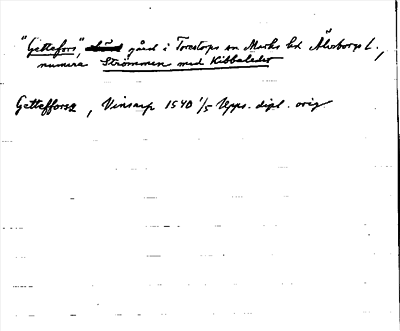 "Gettefors", gård i Torestorps sn Marks hd Älvsborgs L.,
numera Strömmen med Kibbaledet
Getteffors, Vinsarp 1540 1/5 Upps. dipl. orig.